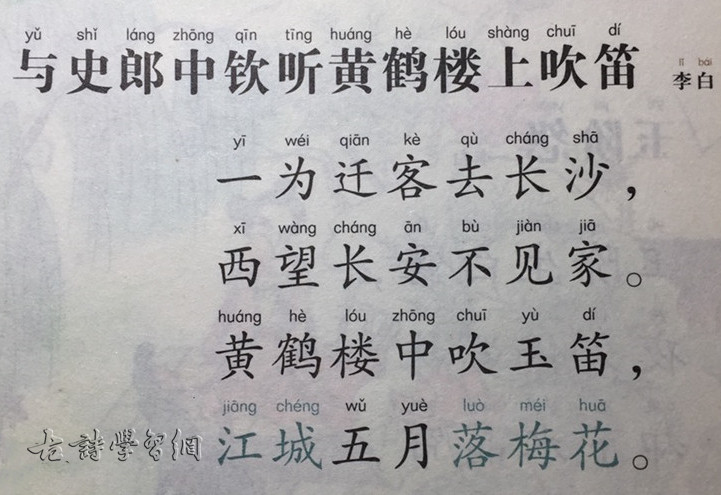 yǔ shǐ láng zhōng qīn tīng huáng hè lóu shàng chuī dí
与史郎中钦听黄鹤楼上吹笛
lǐ bái
李白
yī wéi qiān kè qù cháng shā
一为迁客去长沙，
xī wàng cháng ān bù jiàn jiā
西望长安不见家。
huáng hè lóu zhōng chuī yù dí
黄鹤楼中吹玉笛，
jiāng chéng wǔ yuè luò méi huā
江城五月落梅花。
古詩學習網